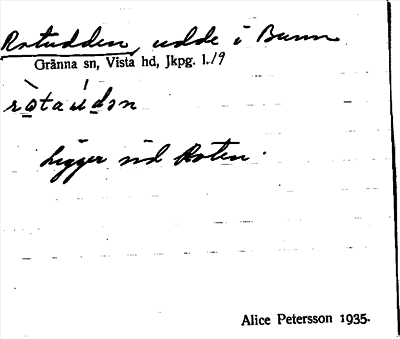 Rotudden, udde i Bunn
Gränna sn, Vista hd, Jkpg. l./9
ròtaúdən
Ligger vid Roten.
Alice Petersson 1935.